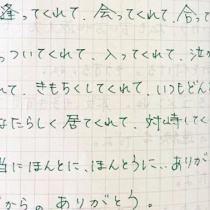 逢ってくれて、会ってくれて、合って
っついてくれて、入ってくれて、泣か
れて、きもちくしてくれて、いつもどん
なたらしく居てくれて、対峙してく
当にほんとに、ほんとうに、、ありが
からの ありがとう。